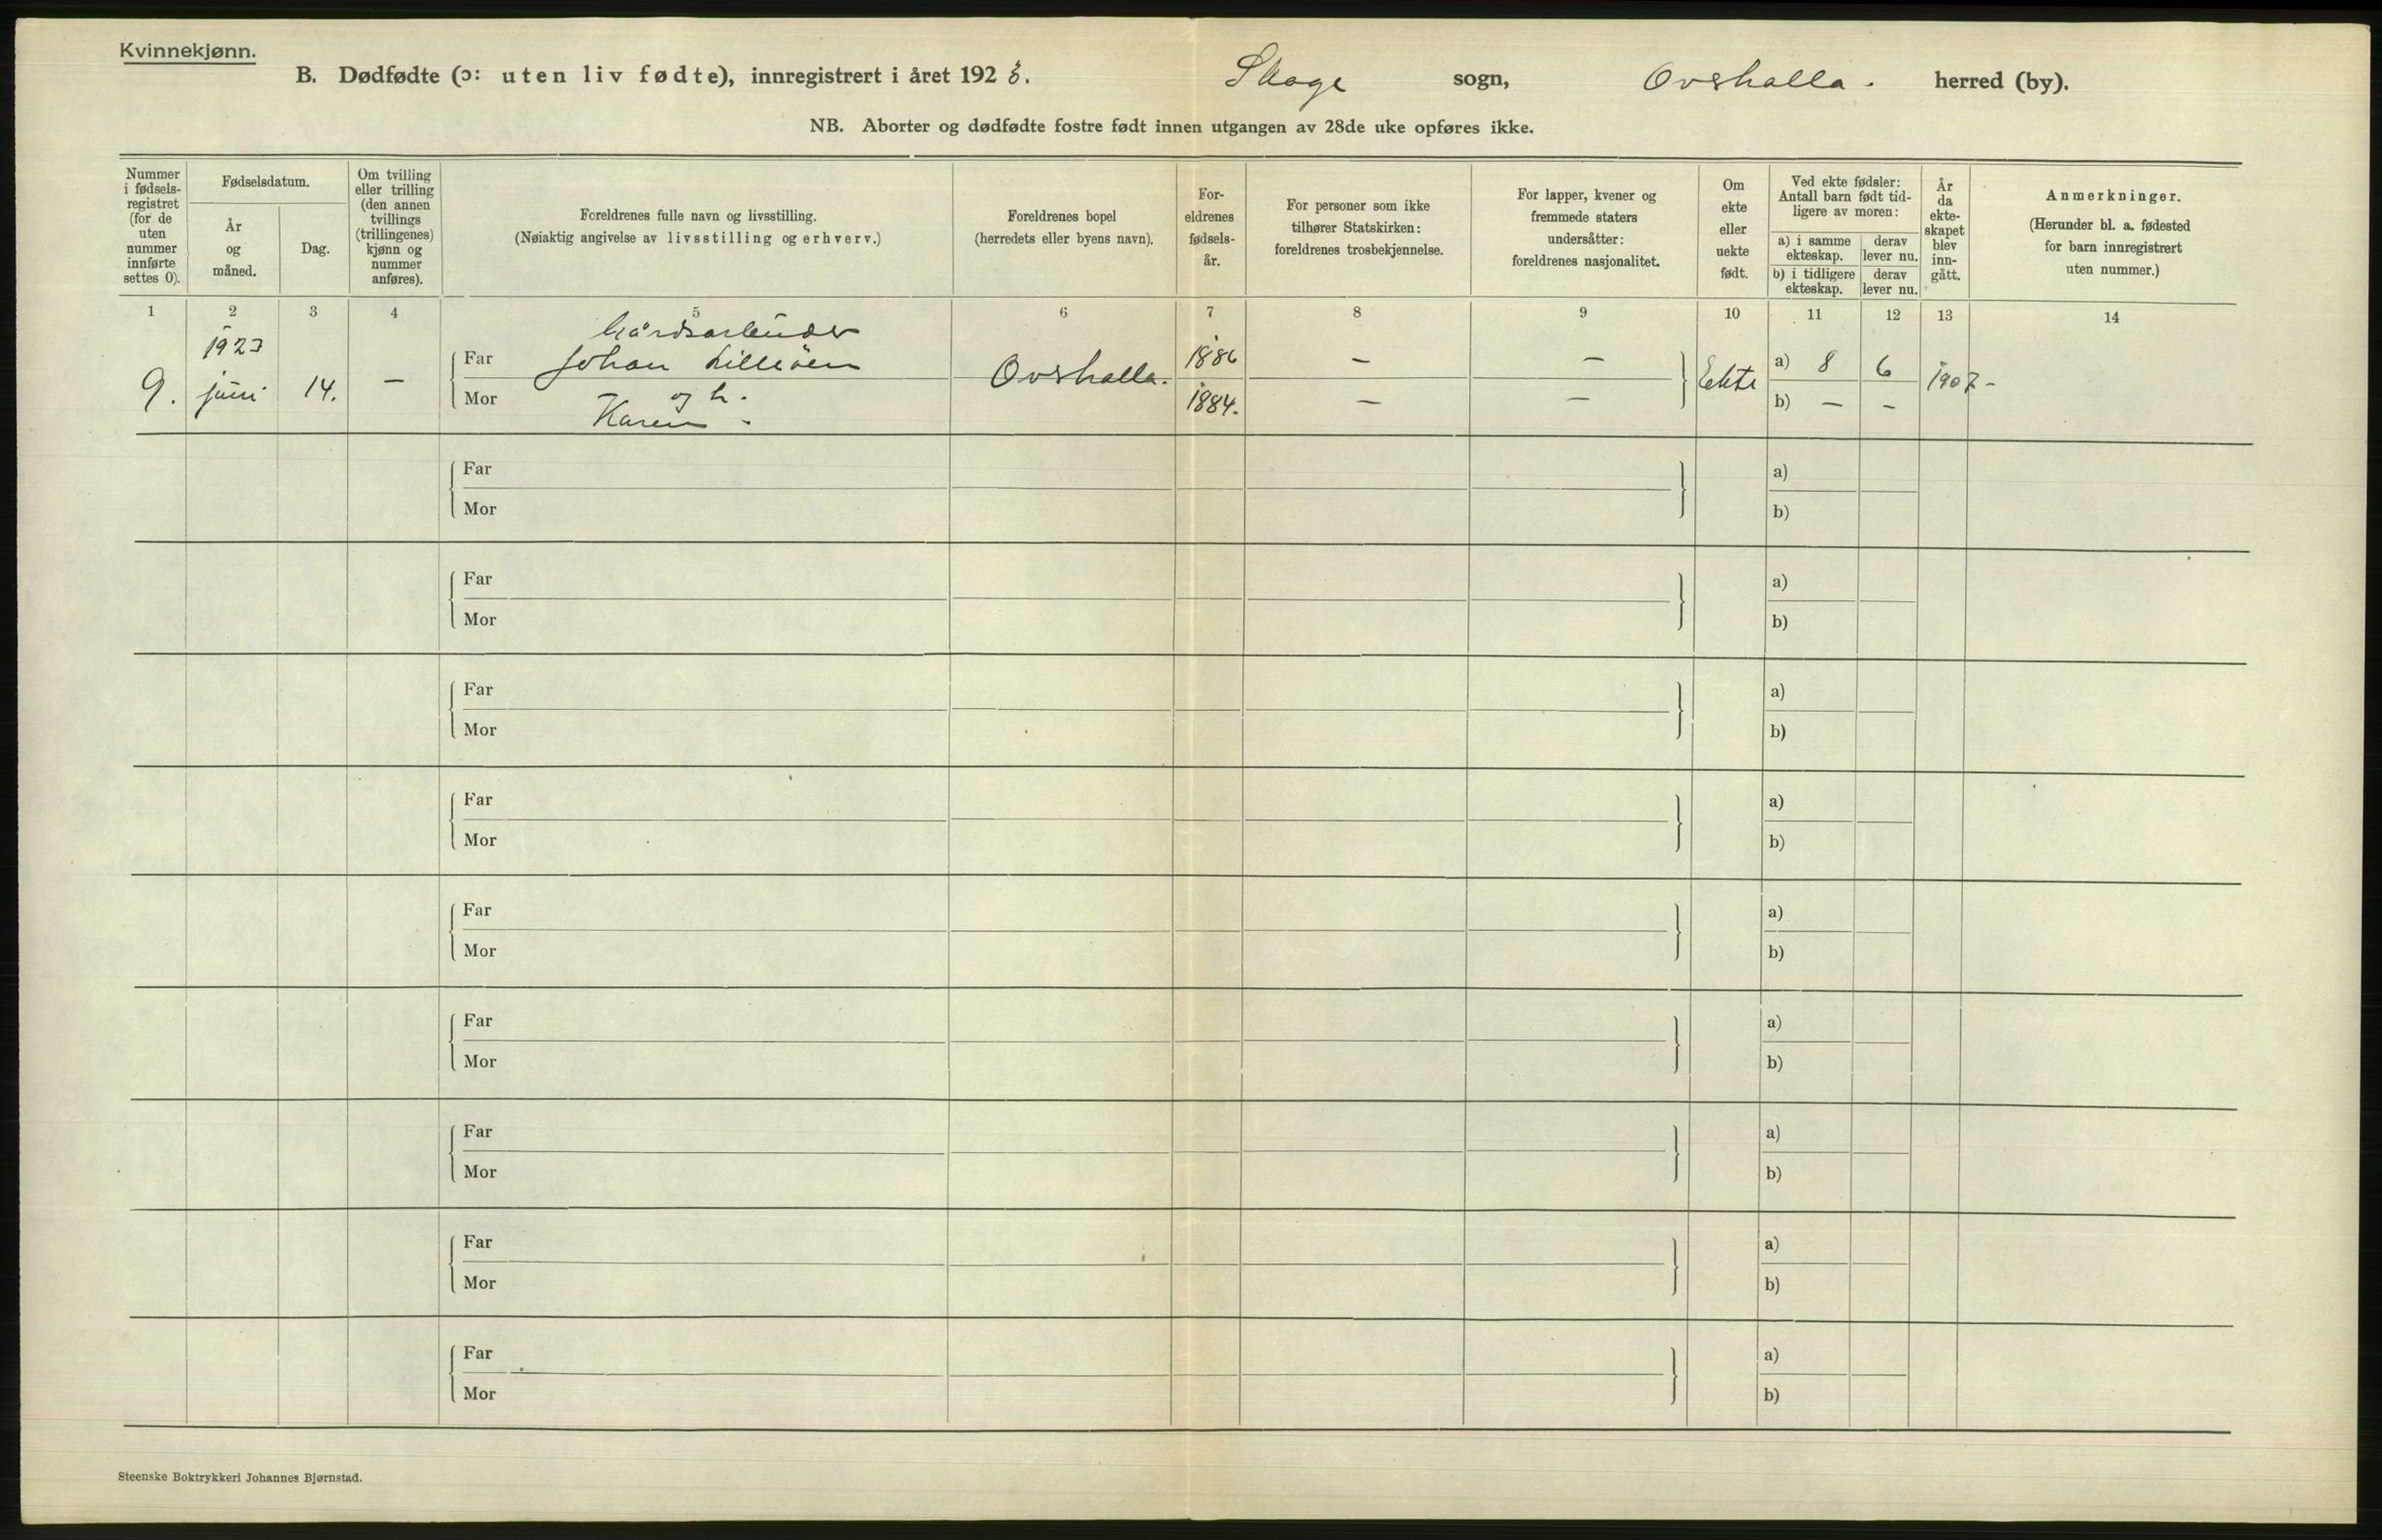 Kvinnekjønn.
B. Dødfødte (ɔ: uten liv fødte), innregistrert i året 1923. Skage sogn, Overhalla. herred (by).
NB. Aborter og dødfødte fostre født innen utgangen av 28de uke opføres ikke.
Nummer i fødsels-registret (for de uten nummer innførte settes 0).
Fødselsdatum.
År og måned.
Dag.
Om tvilling eller trilling (den annen tvillings (trillingenes) kjønn og nummer anføres).
Foreldrenes fulle navn og livsstilling.
(Nøiaktig angivelse av livsstilling og erhverv.)
Foreldrenes bopel
(herredets eller byens navn).
For-eldrenes fødsels-år.
For personer som ikke tilhører Statskirken: foreldrenes trosbekjennelse.
For lapper, kvener og fremmede staters undersåtter: foreldrenes nasjonalitet.
Om ekte eller uekte født.
Ved ekte fødsler: Antall barn født tid-ligere av moren:
a) i samme ekteskap.
derav lever nu.
b) i tidligere ekteskap.
derav lever nu.
År da ekte-skapet blev inn-gått.
Anmerkninger.
(Herunder bl. a. fødested for barn innregistrert uten nummer.)
1 2 3 4 5 6 7 8 9 10 11 12 13 14
9. 1923 juni 14. —
Gårdsarbeider
Far Johan Lilleöen
Mor og h.
Karen
Overhalla.
1886 — —
1884. — —
Ekte
a) 8 6
b) — —
1907 -
Far a)
Mor b)
Far a)
Mor b)
Far a)
Mor b)
Far a)
Mor b)
Far a)
Mor b)
Far a)
Mor b)
Far a)
Mor b)
Far a)
Mor b)
Far a)
Mor b)
Steenske Boktrykkeri Johannes Bjørnstad.